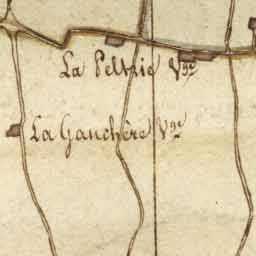 La Peltrie Vge
La Ganchère Vge